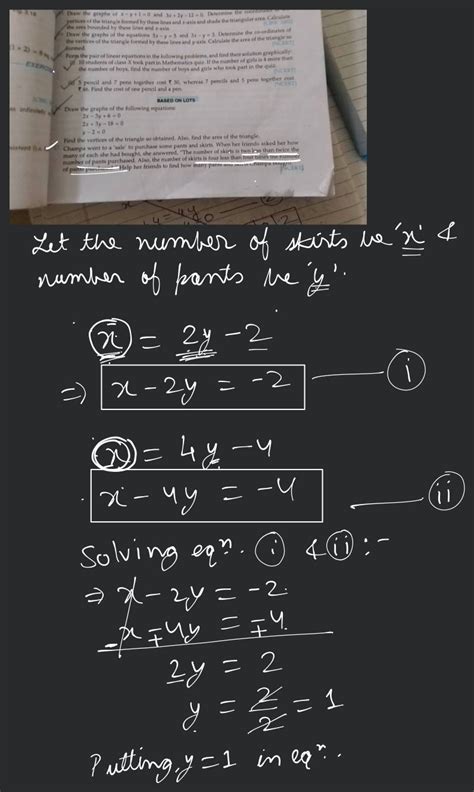 Draw the graphs of x - y + 1 = 0 and 3x + 2y - 12 = 0. Determine the
portion of the triangle formed by these lines and x-axis and shade the triangular area. Calculate
the area bounded by these lines and x-axis.
Draw the graphs of the equations 5x - y = 5 and 3x - y = 3. Determine the co-ordinates of
the vertices of the triangle formed by these lines and y-axis. Calculate the area of the triangle so
formed.
Form the pair of linear equations in the following problems, and find their solution graphically:
10 students of class X took part in Mathematics quiz. If the number of girls is 4 more than
the number of boys, find the number of boys and girls who took part in the quiz.
5 pencil and 7 pens together cost ₹ 50, whereas 7 pencils and 5 pens together cost
₹ 46. Find the cost of one pencil and
BASED ON LOTS
Draw the graphs of the following equations
2x - 3y + 6 = 0
2x + 3y - 18 = 0
x - 2 = 0
Find the vertices of the triangle so obtained. Also, find the area of the triangle.
Champa went to a 'sale' to purchase some pants and skirts. When her friends asked her how
many of each she had bought, she answered, "The number of skirts is two less than twice the
number of pants purchased. Also, the number of skirts is four less than four times the number
of pants Help her friends to find how many pants
Let the number of skirts be 'x' &
number of pants be 'y'.
x = 2y - 2
⇒ x - 2y = -2 (i)
x = 4y - 4
x - 4y = -4 (ii)
Solving eqn. (i) & (ii) :-
⇒ x - 2y = -2
-x ∓ 4y = ∓4
2y = 2
y = 2/2 = 1
Putting, y = 1 in eqn.